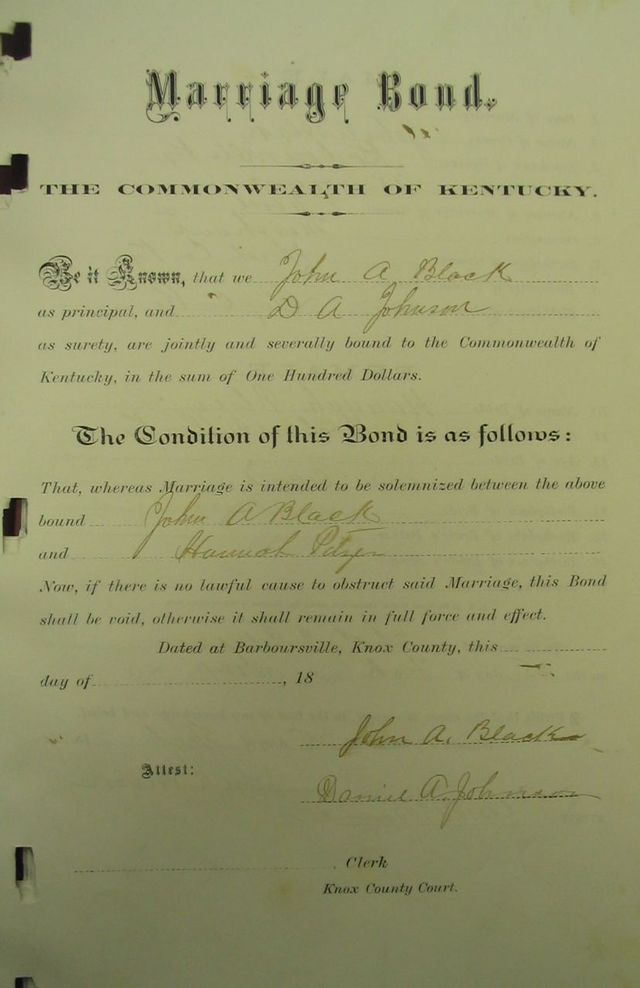 Marriage Bond.
THE COMMONWEALTH OF KENTUCKY.
Be it Known, that we John A. Black
as principal, and D A Johnson
as surety, are jointly and severally bound to the Commonwealth of
Kentucky, in the sum of One Hundred Dollars.
The Condition of this Bond is as follows:
That, whereas Marriage is intended to be solemnized between the above
bound John A Black
and Hannah Pitzer
Now, if there is no lawful cause to obstruct said Marriage, this Bond
shall be void, otherwise it shall remain in full force and effect.
Dated at Barboursville, Knox County, this
day of , 18
John A. Black
Attest:
Daniel A. Johnson
Clerk
Knox County Court.